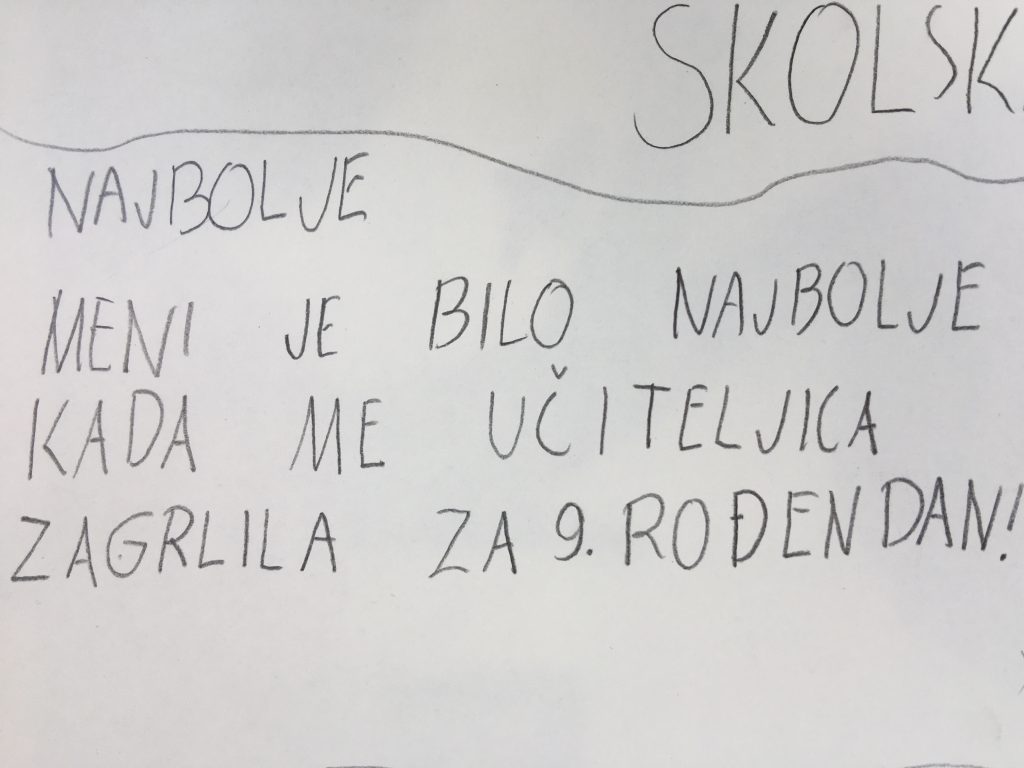 SKOLSK
NAJBOLJE
MENI JE BILO NAJBOLJE
KADA ME UČITELJICA
ZAGRLILA ZA 9. ROĐENDAN!